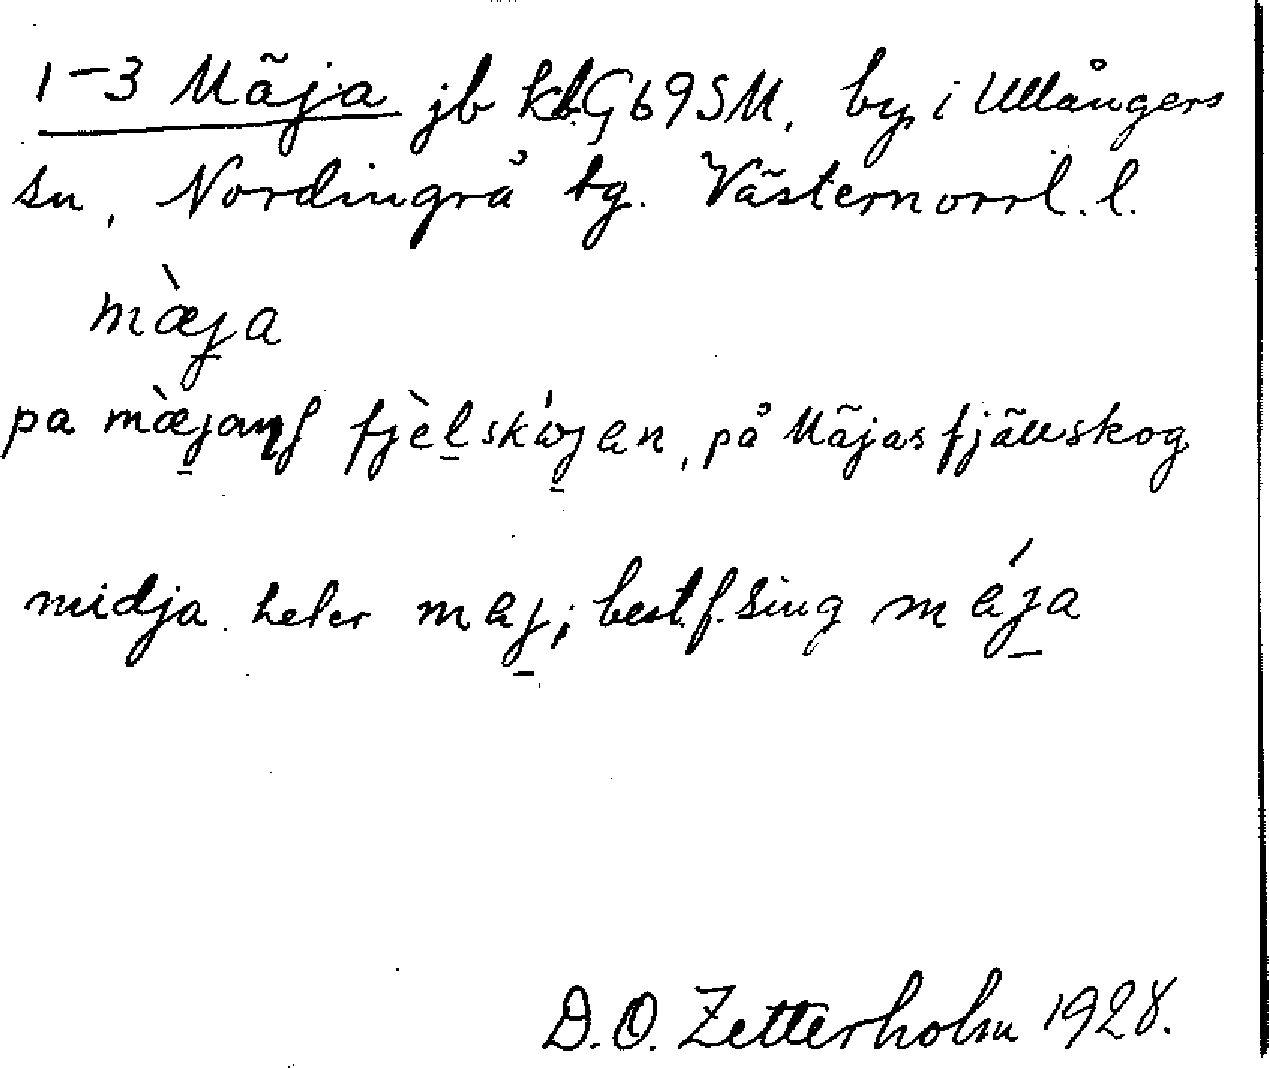 1-3 Mäja jb kbG69SM. by i Ullångers
sn, Nordingrå tg. Västernorrl. l.
mæ̀ja
pa mæ̀jans fjèlskójen, på Mäjas fjällskog
midja heter mej; best.f. sing méja
D.O. Zetterholm 1928.